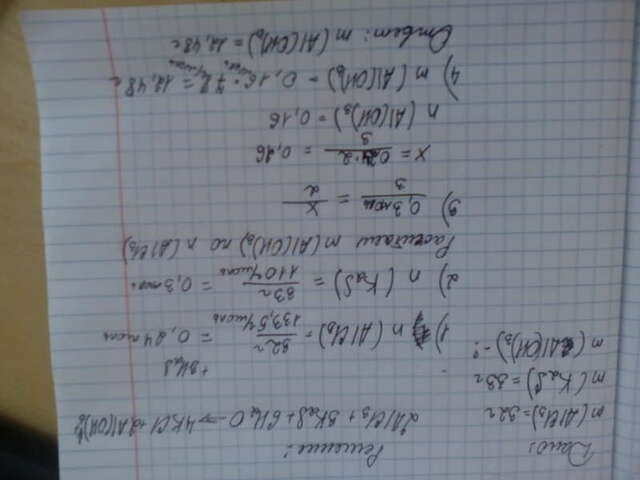 Дано:
m(AlCl3)=32г
m(K2S)=33г
m(Al(OH)3)-?
Решение:
2AlCl3+3K2S+6H2O→4KCl+2Al(OH)3↓
+3H2S
1) n(AlCl3)=32г/133,5г/моль = 0,24моль
2) n(K2S)=33г/110г/моль = 0,3моль
Рассчитаем m(Al(OH)3) по n(AlCl3)
3) 0,3моль/3 = x/2
x = 0,24·2/3 = 0,16
n(Al(OH)3)=0,16
4) m(Al(OH)3) = 0,16·78г/моль = 12,48г
Ответ: m(Al(OH)3)=12,48г